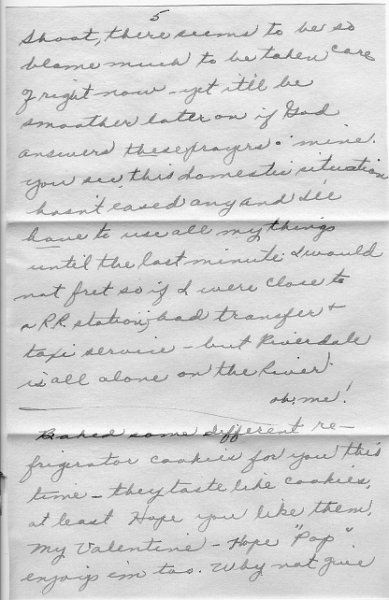 5
Shoot, there seems to be so
blame much to be taken care
of right now - yet it'll be
smoother later on if God
answers these prayers o' mine.
You see, this domestic situation
hasn't eased any and I'll
have to use all my things
until the last minute. I would
not fret so if I were close to
a R.R. station, had transfer +
taxi service - but Riverdale
is all alone on the River!
oh, me!
Baked some different re-
frigerator cookies for you this
time - they taste like cookies,
at least. Hope you like them,
My Valentine - Hope "Pop"
enjoys 'em too. Why not give